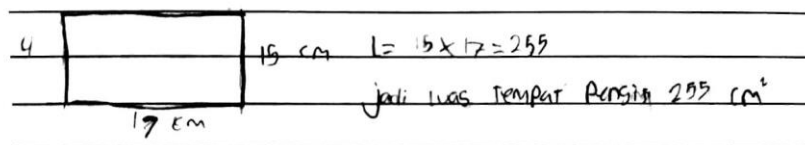 4
15 cm L = 15 x 17 = 255
jadi luas tempat pensin 255 cm²
17 cm